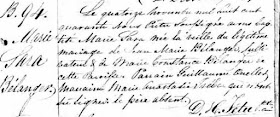 B. 94.
Marie
Sara
Bélanger
Le quatorze
quarante nous Prêtre soussigné avons bap-
tisé Marie Sara née la veille du légitime
mariage de Jean Marie Bélanger, culti-
vateur & de Marie Constance Bélanger de
cette Paroisse. Parrain Guillaume
Marraine Marie Anastasie qui n'ont
su signer le père absent.